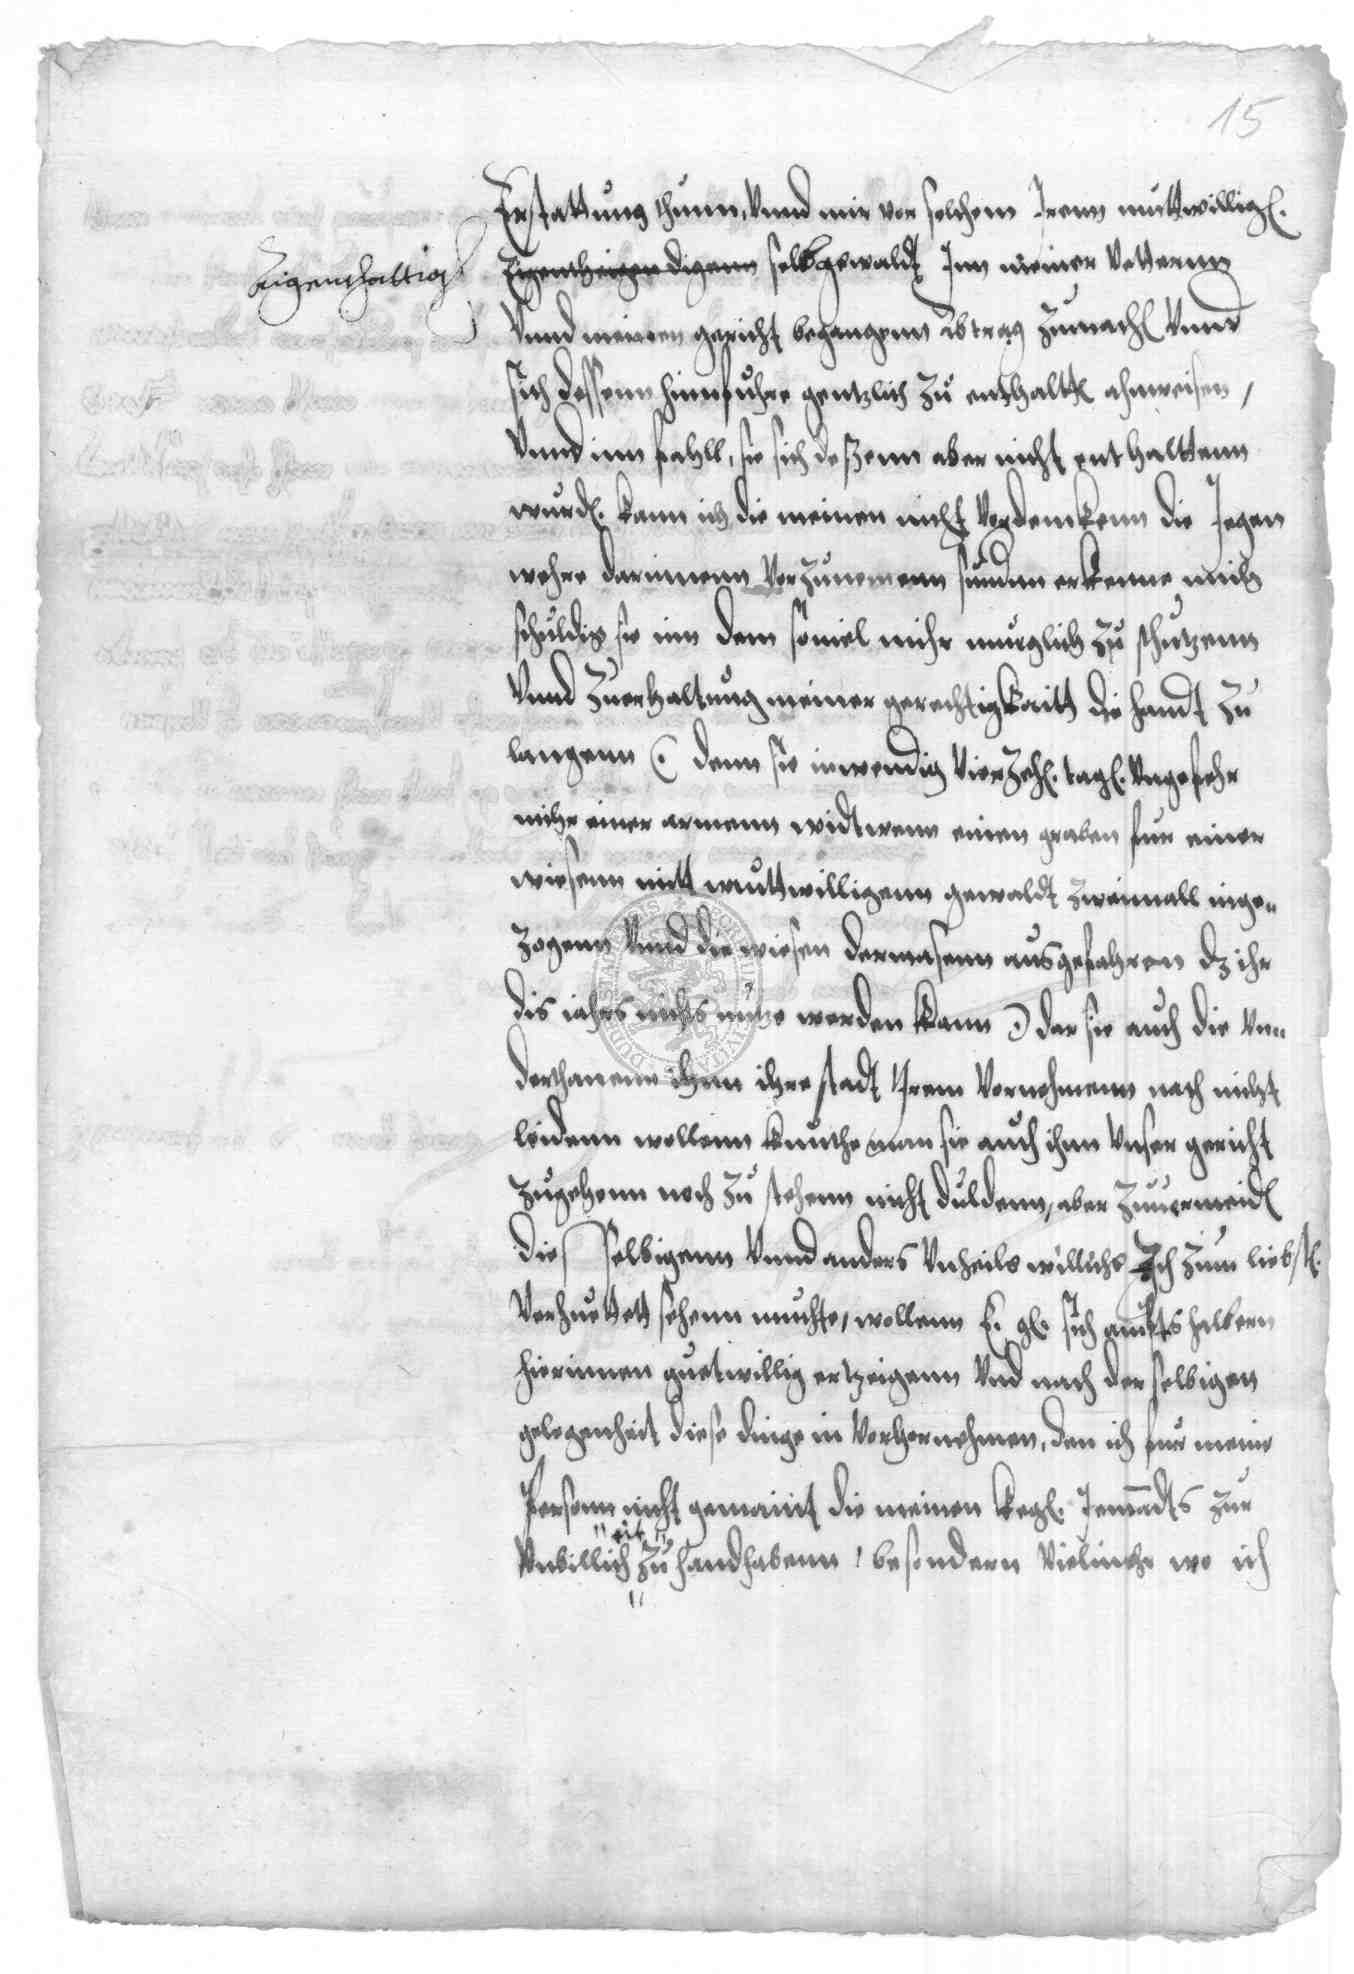 15
Erstattung thunn, Vnnd mir vor solchem Irenn muttwillig.
Eigenthattig
selbgewaldt Inn meiner Vetternn
Vnnd meinen gericht begangenn abtrag Zumach Vnnd
sich dessenn hinnfuhre gentzlich Zu enthaltt ahnweisen,
Vnnd inn fahll, sie sich deßenn aber nicht enthalttenn
wurd. kann ich die meinen nicht Verdenckenn die Jegen
wehre darinnenn Vorzunemenn sundnn erkenne mich
schuldig sie inn dem souiel mihr muglich Zu schutzenn
Vnnd Zuerhaltung meiner gerechtigkaitt die handt Zu
langenn ( denn sie inwendig VierZeh. tag. Vngefehr
mihr einer armenn widtwenn einen graben fur einer
wiesenn mitt muttwilligenn gewaldt Zweimall inge-
Zogenn Vnnd die wiesen dermasenn ausgefahren dz ihr
dis iahrs nichts nutze werden kann ) dar sie auch die Vn-
derthanenn ihnn ihre stadt Irem Vornehmenn nach nicht
leidenn wollenn kunthe man sie auch ihnn Vnser gericht
Zugehenn noch Zu stehenn nicht duldenn, aber Zuuermeid
die selbigenn Vnnd anders Vnheils willichs Ich Zum liebst.
Verhuettett sehenn muchte, wollenn E. g. sich ampts halbenn
hierinnen guetwillig ertzeigenn Vnd nach der selbigen
gelegenheit diese dinge in Verhernehmen, den ich fur meine
Personn nicht gemaint die meinen keg. Jemadts Zur
Vnbillich eit Zu handhabenn, besondern Vielmehr wo ich